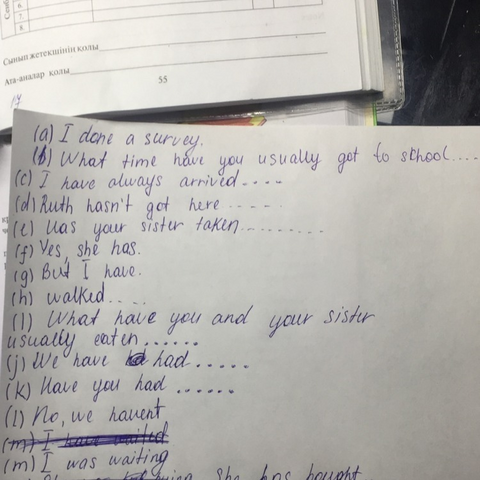 6.
7.
8.
Сынып жетекшінің қолы
Ата-аналар қолы
55
17
(a) I done a survey.
(b) What time have you usually got to school....
(c) I have always arrived....
(d) Ruth hasn't got here .....
(e) Has your sister taken.........
(f) Yes, she has.
(g) But I have.
(h) walked....
(l) What have you and your sister
usually eaten......
(j) We have had .....
(k) Have you had ......
(l) No, we havent
(m) I have waited
(m) I was waiting
she has bought